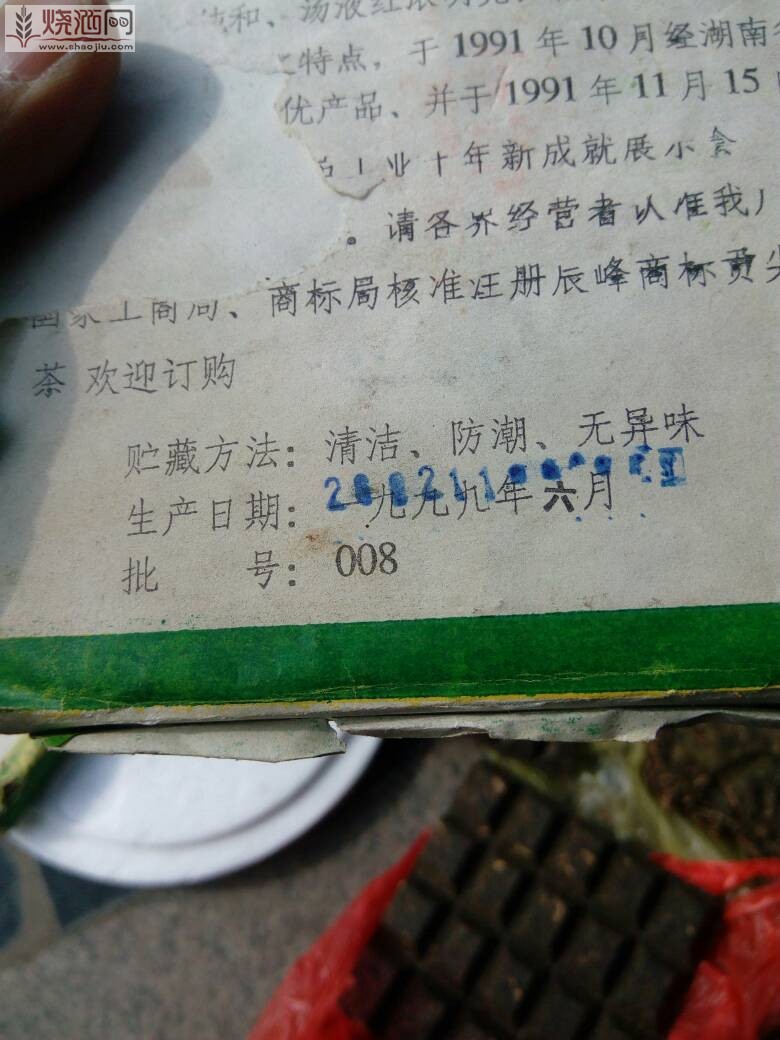 烧酒网
www.shaojiu.com
和、汤液红浓明亮、
特点，于1991年10月经湖南省
优产品、并于1991年11月15日
业十年新成就展小会
。请各界经营者认准我厂
国家工商局、商标局核准注册辰峰商标贡尖
茶 欢迎订购
贮藏方法：清洁、防潮、无异味
生产日期：一九九九年六月
批 号：008